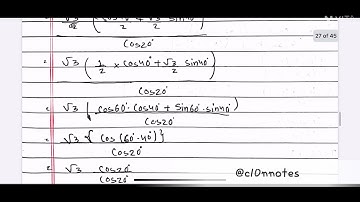 27 of 45
Cos20°
= √3 ( 1/2 × Cos40° + √3/2 Sin40° )
Cos20°
= √3 ( Cos60°. Cos40° + Sin60°. Sin40° )
Cos20°
= √3 { Cos (60°-40°) }
Cos20°
= √3 Cos20°
Cos20°
@cl0nnotes